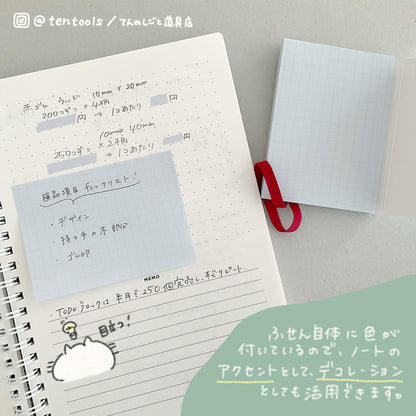 @tentools/てんのしごと道具店
赤ゴム ウッド 10mm × 20mm
200コずつ × 4柄 円
→ 1コあたり 円
10mm× 40mm
250コずつ × 2柄 円
→ 1コあたり 円
検品項目 チェックリスト!
・デザイン
・持ち手の木部分
・ゴム印
MEMO
・TODOブロックは 半月で 250個完売し、すぐリピート
目立つ!
ふせん自体に色が
付いているので、ノートの
アクセントとして、デコレーション
としても活用できます。